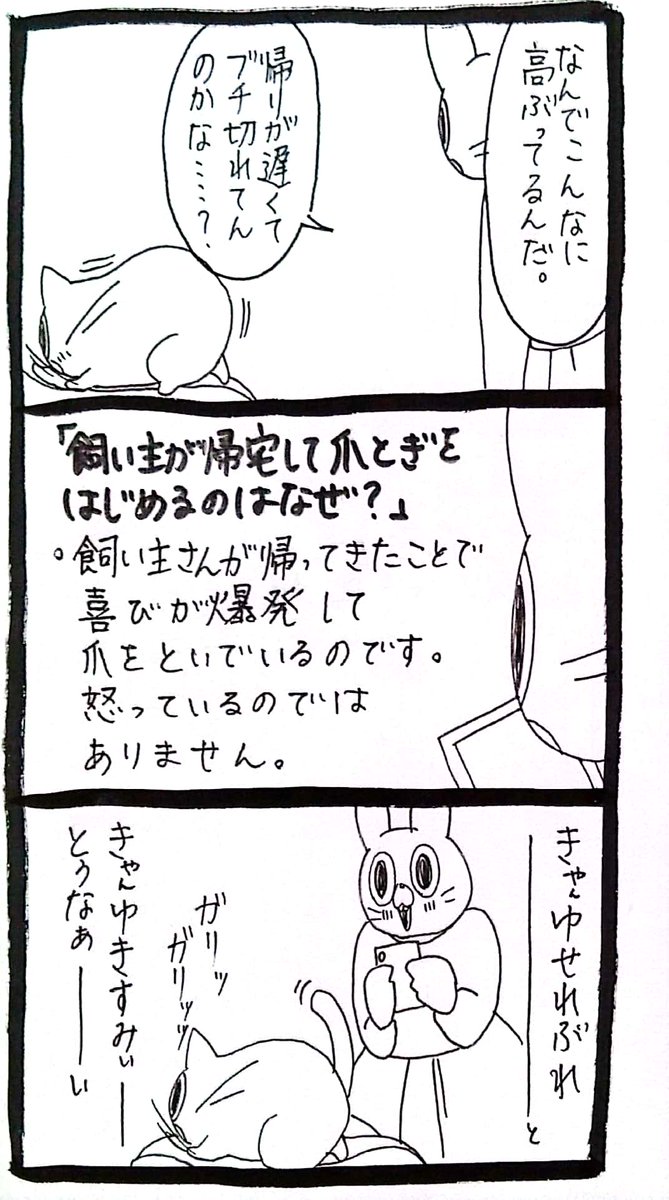 なんでこんなに
高ぶってるんだ。
帰りが遅くて
ブチ切れてん
のかな……?
「飼い主が帰宅して爪とぎを
はじめるのはなぜ?」
。飼い主さんが帰ってきたことで
喜びが爆発して
爪をといでいるのです。
怒っているのでは
ありません。
きゃんゆせれぶれ
――――と
ガリッ
ガリッッ
きゃんゆきすみぃ――
とぅなぁ――い